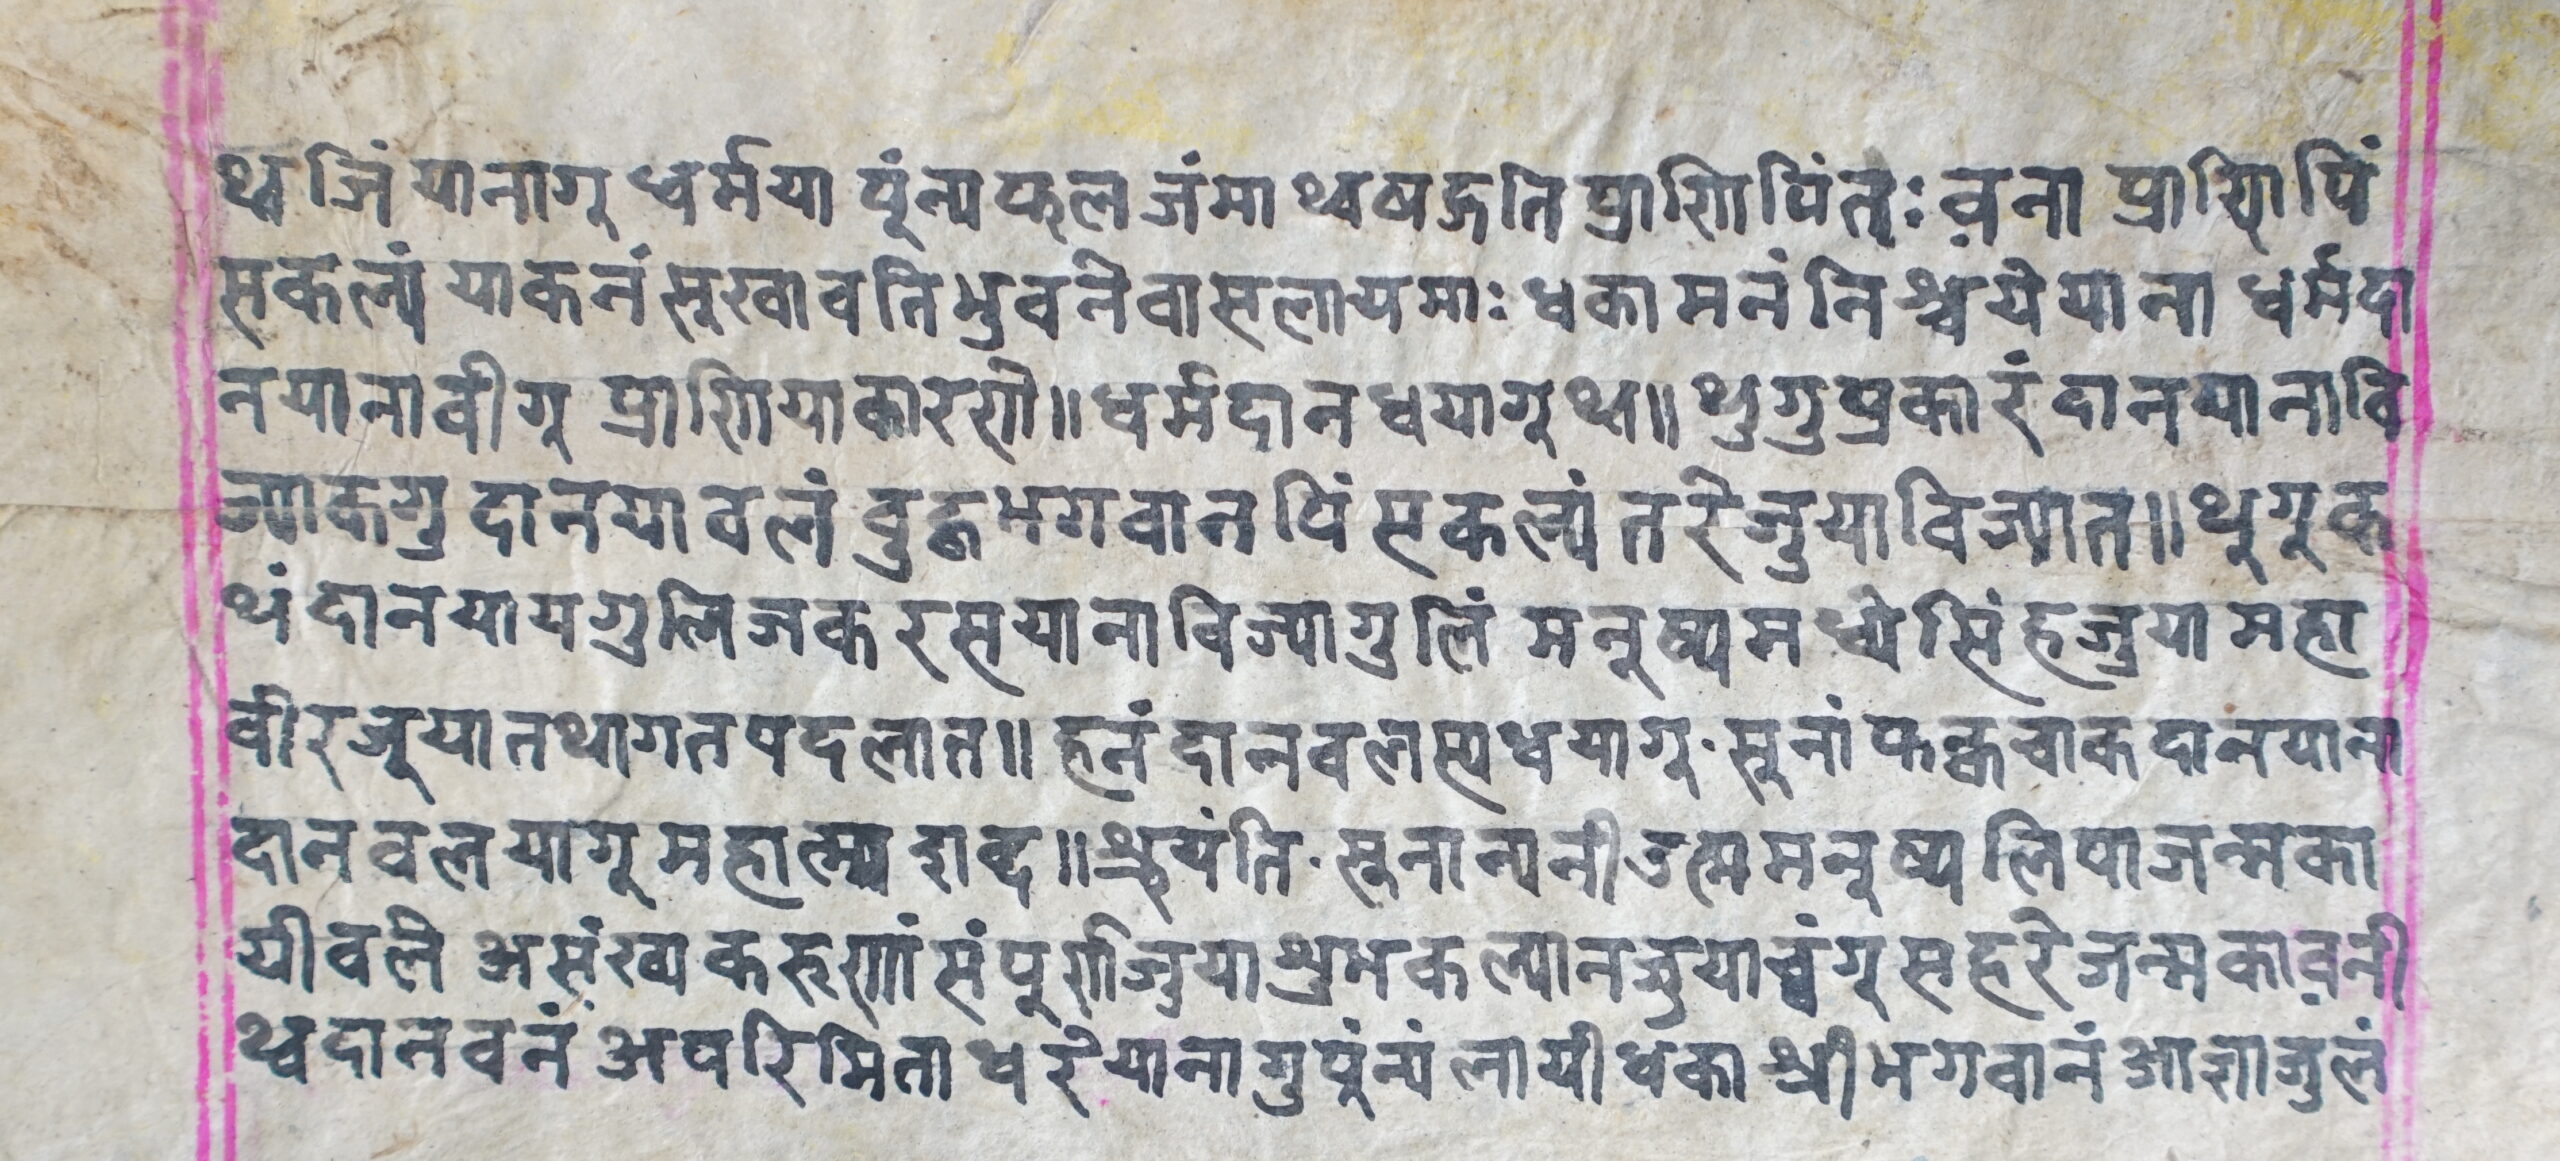 थ्व जिं यानागु धर्मया पुंन्य फल जंमा थ्व षड्गति प्राणिपिंतः व़ना प्राणिपिं
सकल्यं याकनं सुखावति भुवने वासलायमाः धका मनं निश्चये याना धर्मदा
न याना वीगू प्राणिया कारणे॥ धर्मदान धयागू थ्व॥ थुगु प्रकारं दान याना वि
ज्याकगु दानया वलं वुद्ध भगवानपिं सकल्यं तरे जुया विज्यात॥ थुगू क
थं दान यायगुलि जक रस याना विज्यागुलिं मनूष्य मध्ये सिंह जुया महा
वीर जूया तथागत पद लात॥ हनं दान वलस्य धयागु . सूनां फक्व चाक दान याना
दान वलयागू महात्म्य शब्द॥ श्रुयंति . सूनान्य नी उत्म मनूष्य लिपा जन्म का
यीवले असंख्य करूणां संपूर्ण जुया शुभ कल्यान जुया च्वंगू सहरे जन्म काव़नी
थ्व दान वनं अपरिमिता धरे यानागु पुंन्यं लायी धका श्री भगवानं आज्ञा जुलं